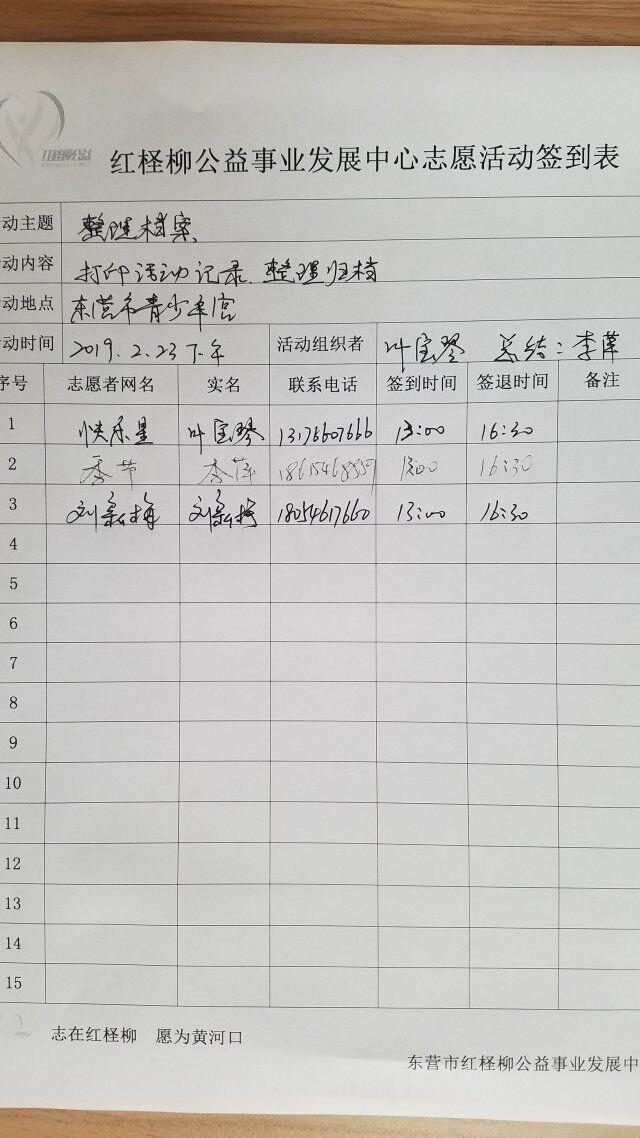 红柽柳公益
红柽柳公益事业发展中心志愿活动签到表
动主题 整理档案
动内容 打印活动记录、整理归档
动地点 东营市青少年宫
动时间 2019.2.23下午 活动组织者 叶宝琴 总结：李萍
序号 志愿者网名 实名 联系电话 签到时间 签退时间 备注
1 快乐星 叶宝琴 13175607666 13:00 16:30
2 季节 李萍 13:00 16:30
3 刘新梅 刘新梅 18054617660 13:00 16:30
4
5
6
7
8
9
10
11
12
13
14
15
志在红柽柳 愿为黄河口
东营市红柽柳公益事业发展中